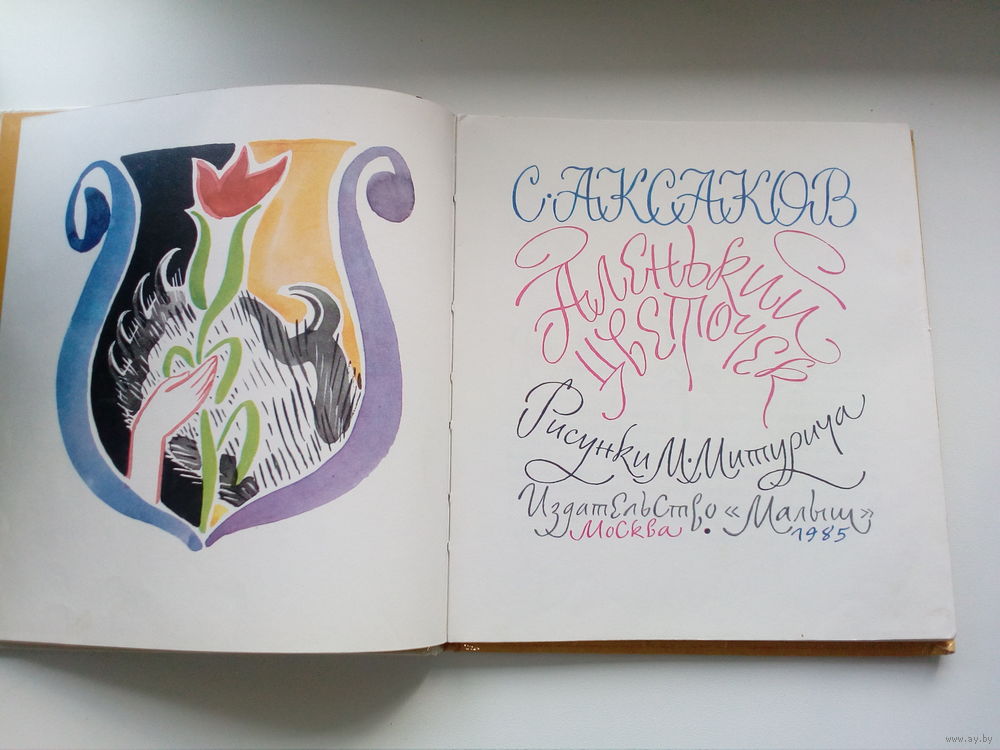 С. АКСАКОВ
Аленький
цветочек
Рисунки М. Митурича
Издательство «Малыш»
Москва. 1985
www.ay.by